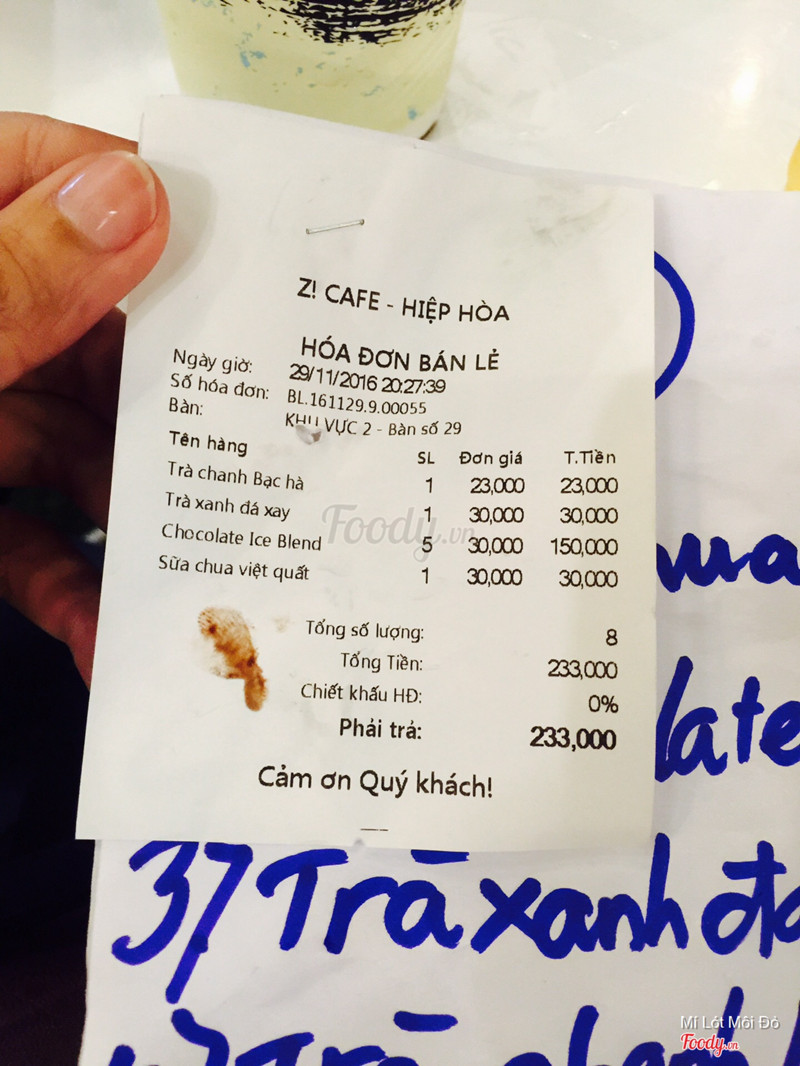 Z! CAFE - HIỆP HÒA
HÓA ĐƠN BÁN LẺ
Ngày giờ: 29/11/2016 20:27:39
Số hóa đơn: BL.161129.9.00055
Bàn: KHU VỰC 2 - Bàn số 29
Tên hàng SL Đơn giá T.Tiền
Trà chanh Bạc hà 1 23,000 23,000
Trà xanh đá xay 1 30,000 30,000
Chocolate Ice Blend 5 30,000 150,000
Sữa chua việt quất 1 30,000 30,000
Foody.vn
Tổng số lượng: 8
Tổng Tiền: 233,000
Chiết khấu HĐ: 0%
Phải trả: 233,000
Cảm ơn Quý khách!
late
37 Trà xanh đá
Trà chanh
Mỉ Lót Môi Đỏ
Foody.vn